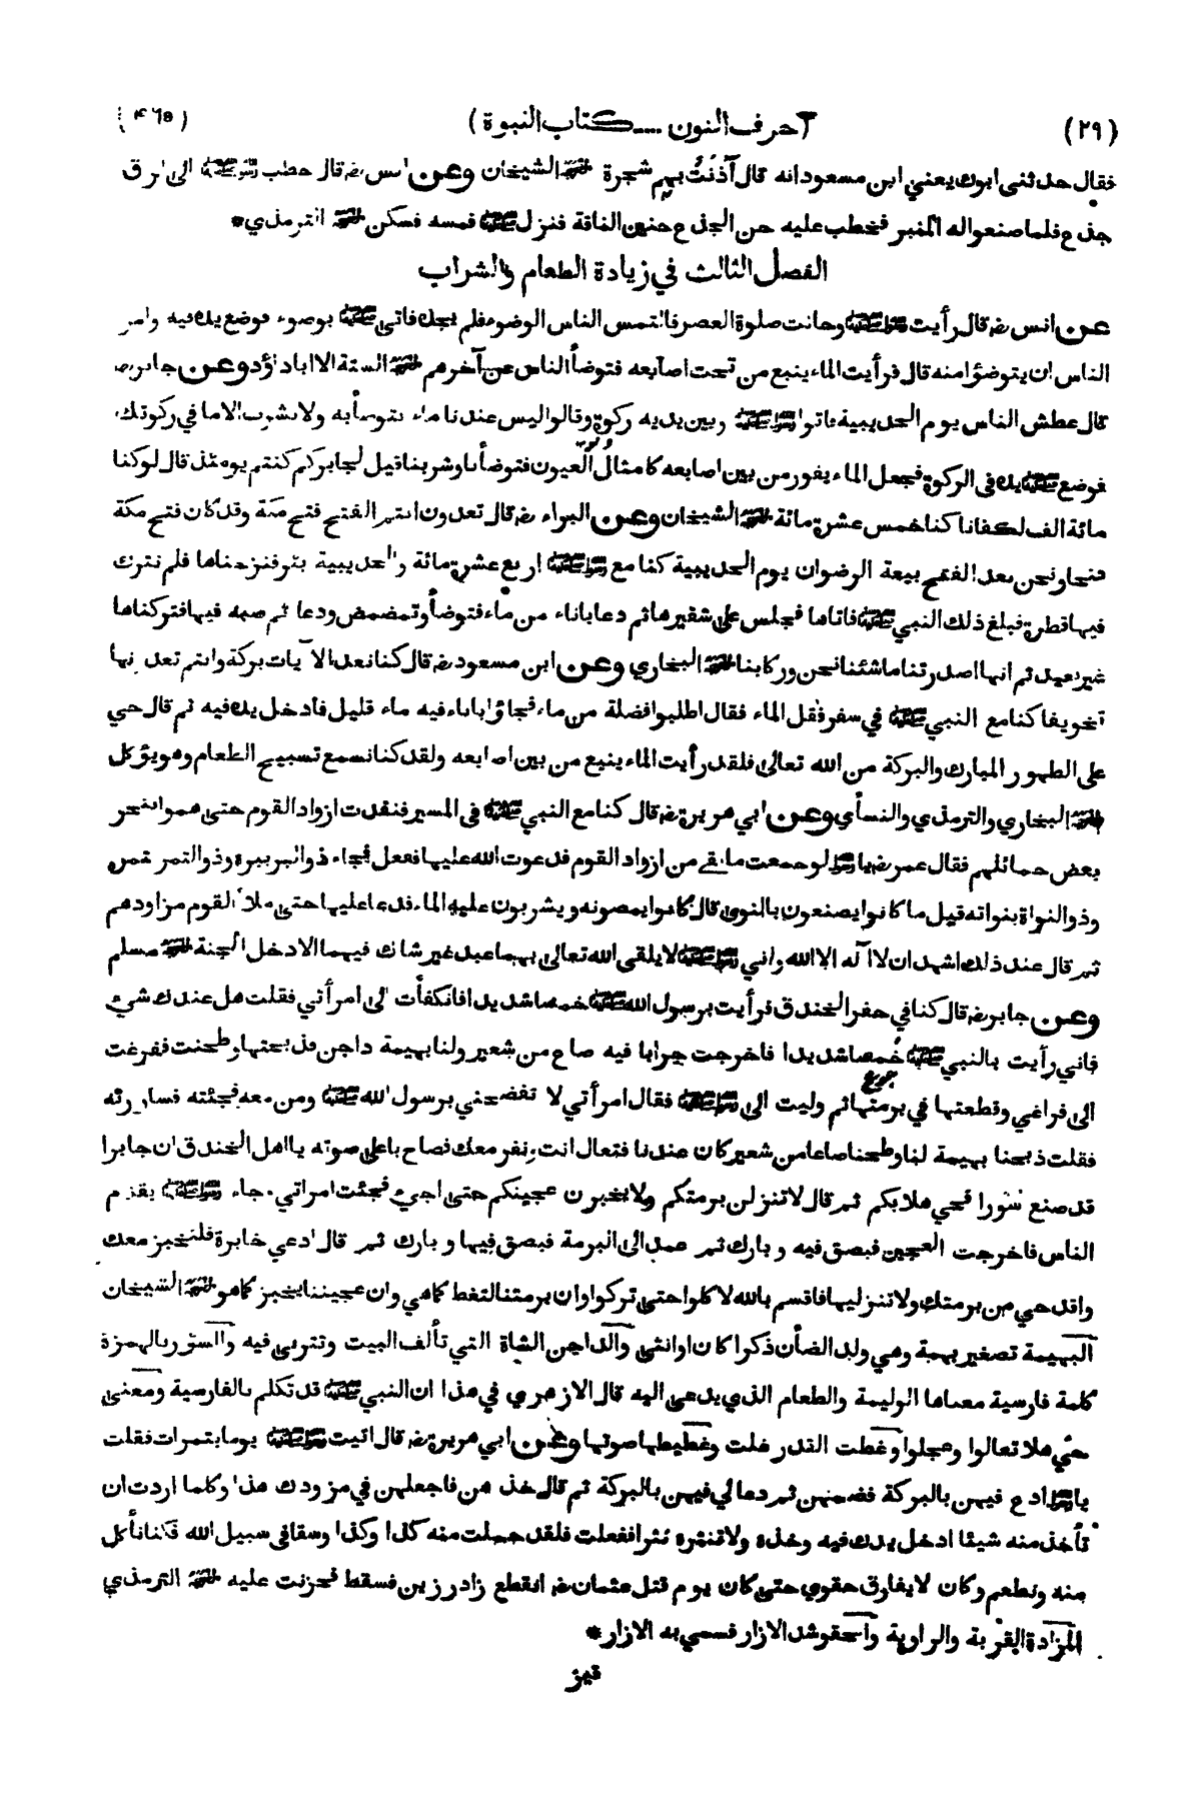 (٢٩) (حرف النون .... كتاب النبوة) (٤٦٥)
فقال حدثنى ابوك يعني ابن مسعود انه قال آذنت بهم شجرة اخرجه الشيخان وعن انس رض قال خطب رسول الله صلى الله عليه وسلم الى لزق
جذع فلما صنعوا له المنبر فخطب عليه حن الجذع حنين الناقة فنزل صلى الله عليه وسلم فمسه فسكن اخرجه الترمذي*
الفصل الثالث في زيادة الطعام والشراب
عن انس رض قال رأيت رسول الله صلى الله عليه وسلم وحانت صلوة العصر فالتمس الناس الوضوء فلم يجدوه فاتى صلى الله عليه وسلم بوضوء فوضع يده فيه وامر
الناس ان يتوضؤا منه قال فرأيت الماء ينبع من تحت اصابعه فتوضأ الناس عن آخرهم اخرجه الستة الا اباداؤد وعن جابر رض
قال عطش الناس يوم الحديبية فاتوا رسول الله صلى الله عليه وسلم وبين يديه ركوة وقالوا ليس عندنا ماء نتوضأ به ولا نشرب الا ما في ركوتك
فوضع صلى الله عليه وسلم يده فى الركوة فجعل الماء يفور من بين اصابعه كامثال العيون فتوضأنا وشربنا قيل لجابر كم كنتم يومئذ قال لو كنا
مائة الف لكفانا كنا خمس عشرة مائة اخرجه الشيخان وعن البراء رض قال تعدون انتم الفتح فتح مكة وقد كان فتح مكة
فتحا ونحن نعد الفتح بيعة الرضوان يوم الحديبية كنا مع رسول الله صلى الله عليه وسلم اربع عشرة مائة والحديبية بئر فنزحناها فلم نترك
فيها قطرة فبلغ ذلك النبي صلى الله عليه وسلم فاتاها فجلس على شفيرها ثم دعا باناء من ماء فتوضأ وتمضمض ودعا ثم صبه فيها فتركناها
غير بعيد ثم انها اصدرتنا ما شئنا نحن وركابنا اخرجه البخاري وعن ابن مسعود رض قال كنا نعد الآيات بركة وانتم تعدونها
تخويفا كنا مع النبي صلى الله عليه وسلم في سفر فقل الماء فقال اطلبوا فضلة من ماء فجاؤا باناء فيه ماء قليل فادخل يده فيه ثم قال حي
على الطهور المبارك والبركة من الله تعالى فلقد رأيت الماء ينبع من بين اصابعه ولقد كنا نسمع تسبيح الطعام وهو يؤكل
اخرجه البخاري والترمذي والنسأي وعن ابي هريرة رض قال كنا مع النبي صلى الله عليه وسلم فى المسير فنفدت ازواد القوم حتى هموا بنحر
بعض حمائلهم فقال عمر رض يا رسول الله لو جمعت ما بقي من ازواد القوم فدعوت الله عليها ففعل فجاء ذو البر ببره وذو التمر بتمره
وذو النواة بنواته قيل ما كانوا يصنعون بالنوى قال كانوا يمصونه ويشربون عليه الماء فدعا عليها حتى ملأ القوم مزاودهم
ثم قال عند ذلك اشهد ان لا اله الا الله واني رسول الله لا يلقى الله تعالى بهما عبد غير شاك فيهما الا دخل الجنة اخرجه مسلم
وعن جابر رض قال كنا في حفر الخندق فرأيت برسول الله صلى الله عليه وسلم خمصا شديدا فانكفأت الى امرأتي فقلت هل عندك شئ
فاني رأيت بالنبي صلى الله عليه وسلم خمصا شديدا فاخرجت جرابا فيه صاع من شعير ولنا بهيمة داجن فذبحتها وطحنت ففرغت
جوع
الى فراغي وقطعتها في برمتها ثم وليت الى رسول الله صلى الله عليه وسلم فقال امرأتي لا تفضحني برسول الله صلى الله عليه وسلم ومن معه فجئته فساررته
فقلت ذبحنا بهيمة لنا وطحنا صاعا من شعير كان عندنا فتعال انت ونفر معك فصاح باعلى صوته يا اهل الخندق ان جابرا
قد صنع سورا فحي هلا بكم ثم قال لا تنزلن برمتكم ولا يخبزن عجينكم حتى اجئ فجئت امراتي وجاء رسول الله صلى الله عليه وسلم يقدم
الناس فاخرجت العجين فبصق فيه وبارك ثم عمد الى البرمة فبصق فيها وبارك ثم قال ادعي خابزة فلتخبز معك
واقدحي من برمتك ولا تنزليها فاقسم بالله لاكلوا حتى تركوا وان برمتنا لتغط كما هي وان عجيننا يخبز كما هو اخرجه الشيخان
البهيمة تصغير بهمة وهي ولد الضأن ذكرا كان او انثى والداجن الشاة التي تألف البيت وتتربى فيه والسؤر بالهمزة
كلمة فارسية معناها الوليمة والطعام الذي يدعى اليه قال الازهري في هذا ان النبي صلى الله عليه وسلم قد تكلم بالفارسية ومعنى
حي هلا تعالوا وعجلوا وغطت القدر غلت وغطيطها صوتها وعن ابي هريرة رض قال اتيت رسول الله صلى الله عليه وسلم يوما بتمرات فقلت
يا رسول الله ادع فيهن بالبركة فضمهن ثم دعا لي فيهن بالبركة ثم قال خذهن فاجعلهن في مزودك هذا وكلما اردت ان
تأخذ منه شيئا ادخل يدك فيه وخذه ولا تنثره نثرا ففعلت فلقد حملت منه كذا وكذا وسقا في سبيل الله فكنا نأكل
منه ونطعم وكان لا يفارق حقوي حتى كان يوم قتل عثمان رض انقطع زاد رزين فسقط فحزنت عليه اخرجه الترمذي
المزادة القربة والراوية والحقو شد الازار فسمي به الازار*
قيز